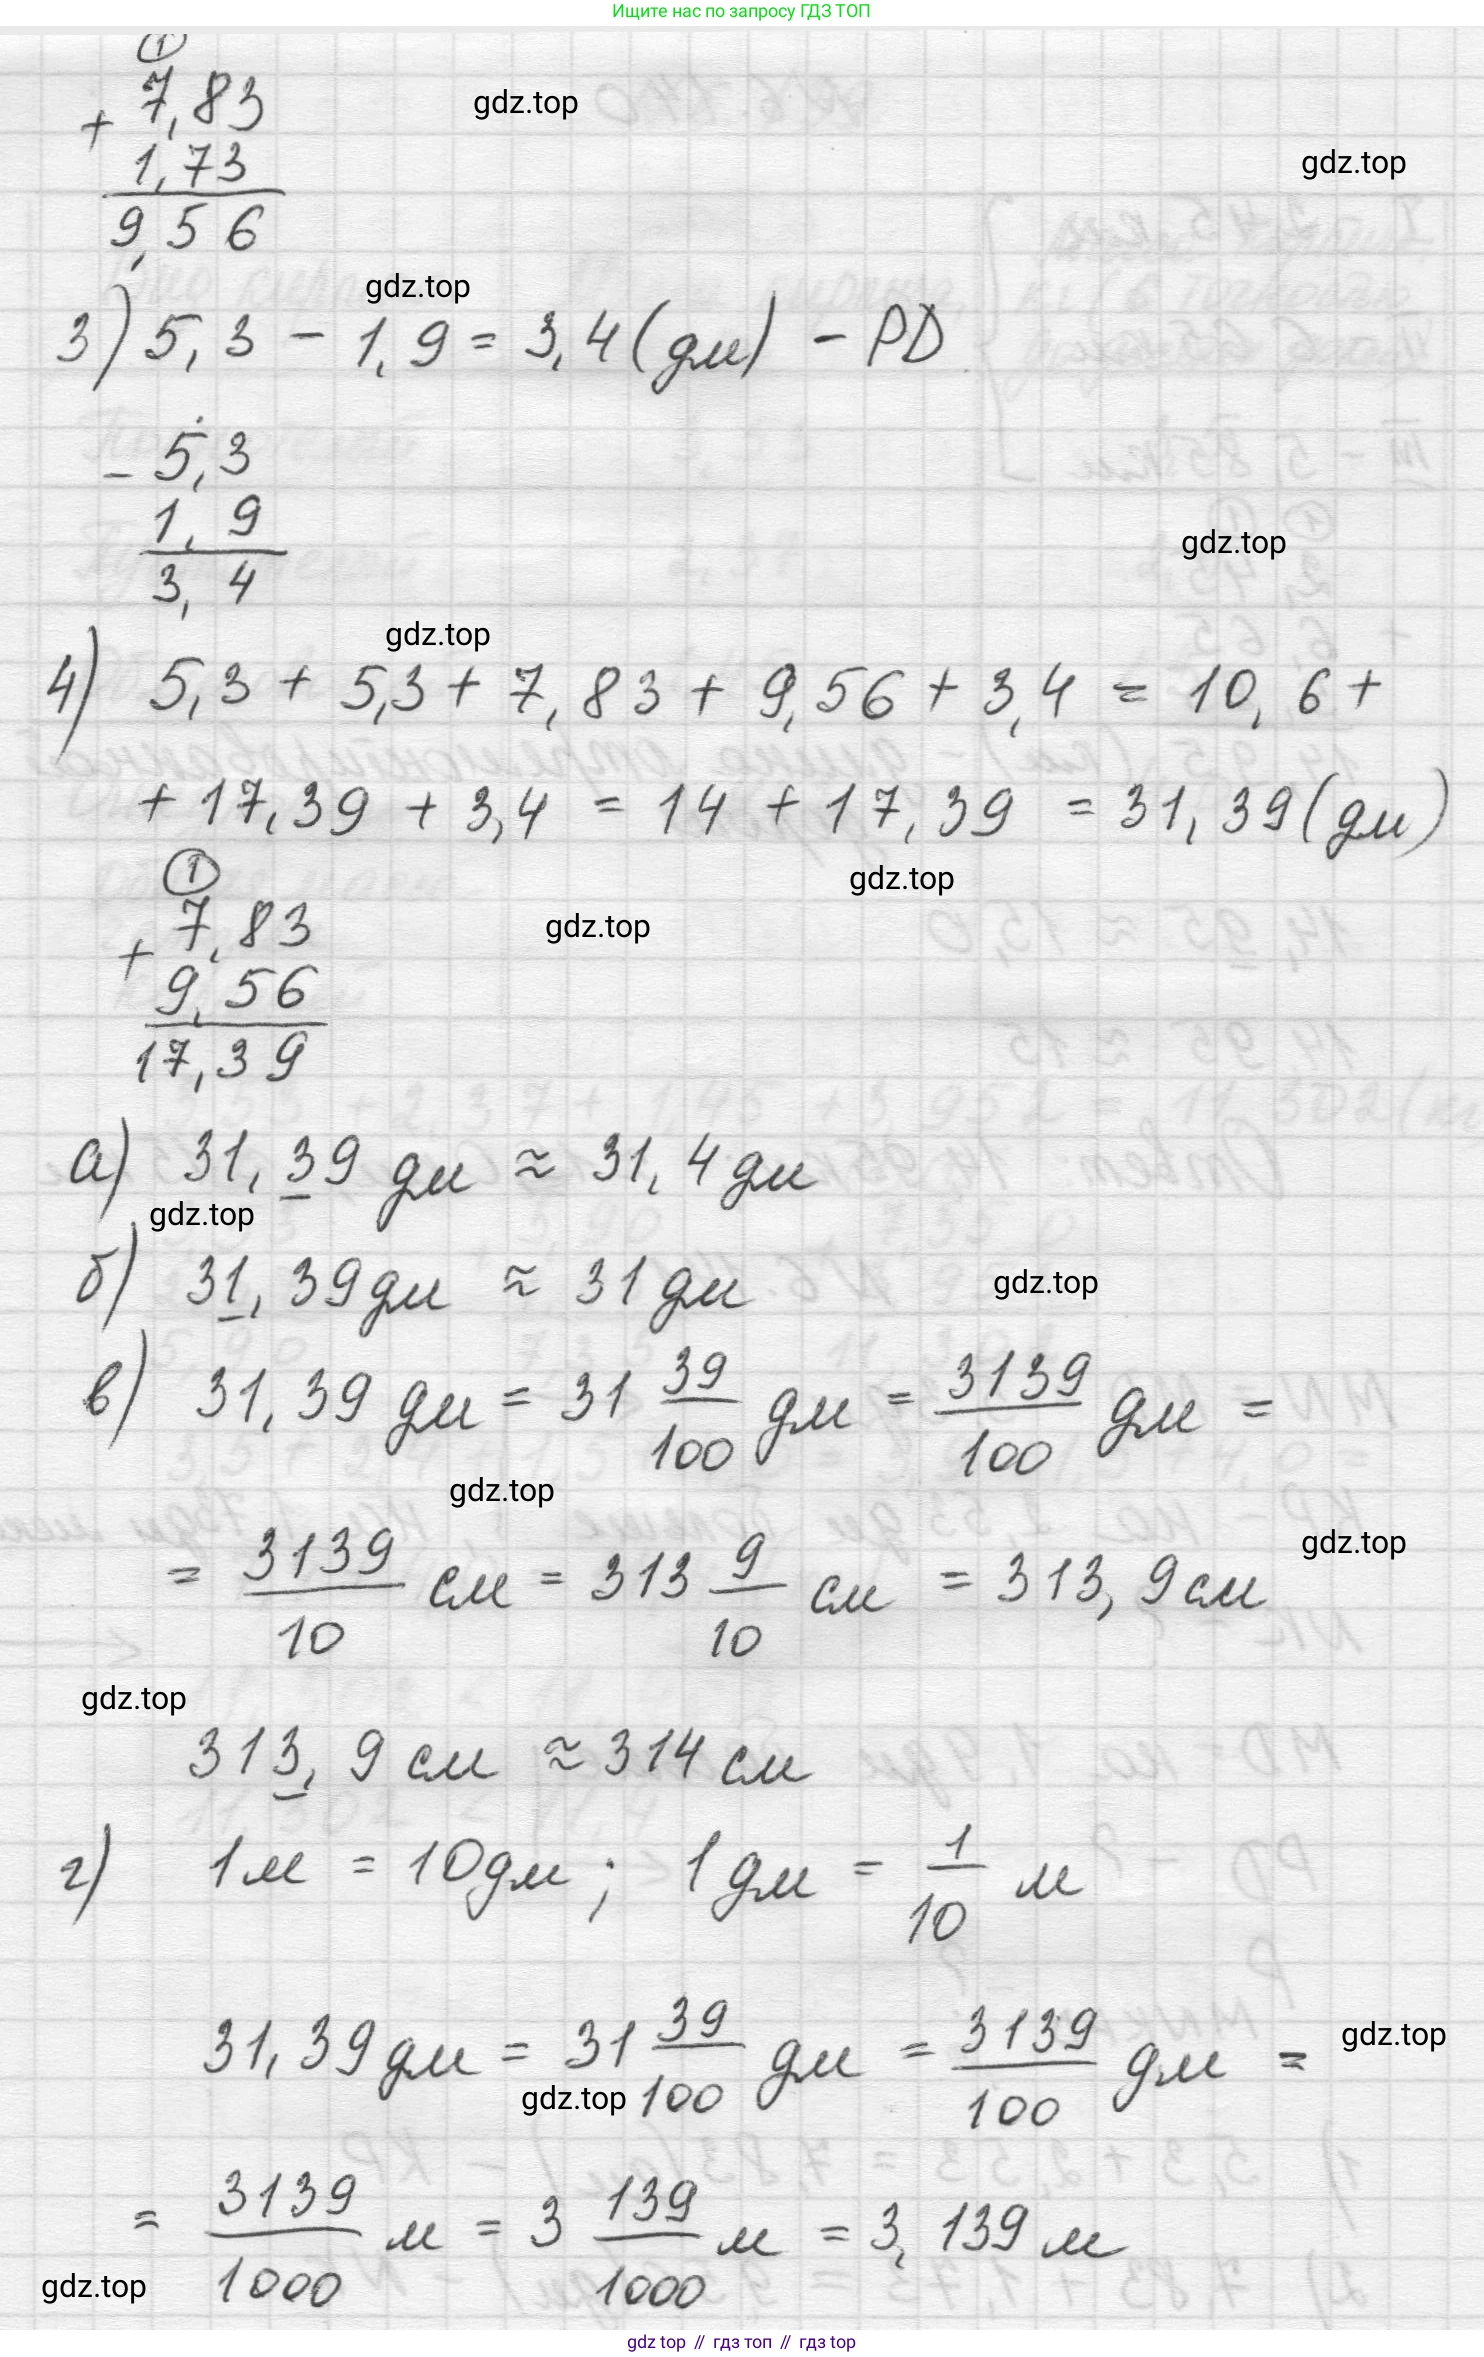 Ищите нас по запросу ГДЗ ТОП
①
+ 7,83
gdz.top
1,73
gdz.top
9,56
gdz.top
3) 5,3 - 1,9 = 3,4 (дм) - PD
- 5,3
1,9
gdz.top
3,4
gdz.top
4) 5,3 + 5,3 + 7,83 + 9,56 + 3,4 = 10,6 +
+ 17,39 + 3,4 = 14 + 17,39 = 31,39 (дм)
①
gdz.top
+ 7,83
gdz.top
9,56
17,39
а) 31,39 дм ≈ 31,4 дм
gdz.top
б) 31,39 дм ≈ 31 дм
gdz.top
в) 31,39 дм = 31 39/100 дм = 3139/100 дм =
gdz.top
= 3139/10 см = 313 9/10 см = 313,9 см
gdz.top
gdz.top
313,9 см ≈ 314 см
г) 1 м = 10 дм; 1 дм = 1/10 м
31,39 дм = 31 39/100 дм = 3139/100 дм =
gdz.top
gdz.top
= 3139/1000 м = 3 139/1000 м = 3,139 м
gdz.top
gdz.top // гдз топ // гдз top